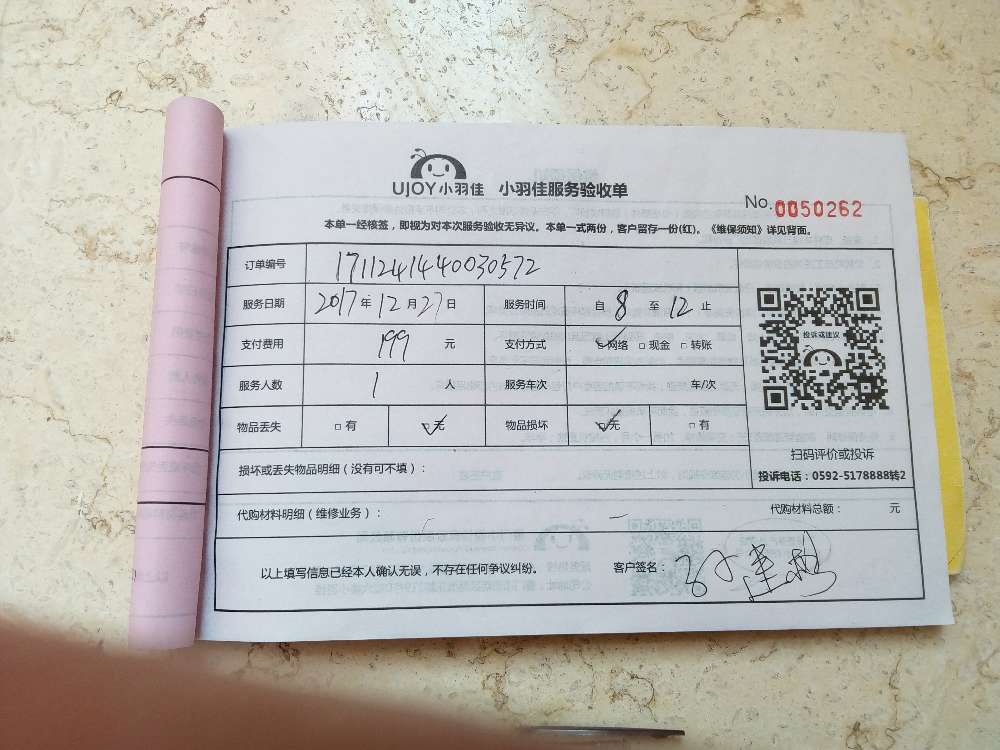 UJOY小羽佳 小羽佳服务验收单
No.0050262
本单一经核签，即视为对本次服务验收无异议。本单一式两份，客户留存一份(红)。《维保须知》详见背面。
订单编号 1711241440030572
服务日期 2017年12月27日 服务时间 自8至12止
支付费用 199 元 支付方式 ☑网络 □现金 □转账
服务人数 1 人 服务车次 车/次
物品丢失 □有 ☑无 物品损坏 ☑无 □有
投诉或建议
扫码评价或投诉
投诉电话：0592-5178888转2
损坏或丢失物品明细（没有可不填）：
代购材料明细（维修业务）： 代购材料总额： 元
以上填写信息已经本人确认无误，不存在任何争议纠纷。 客户签名：